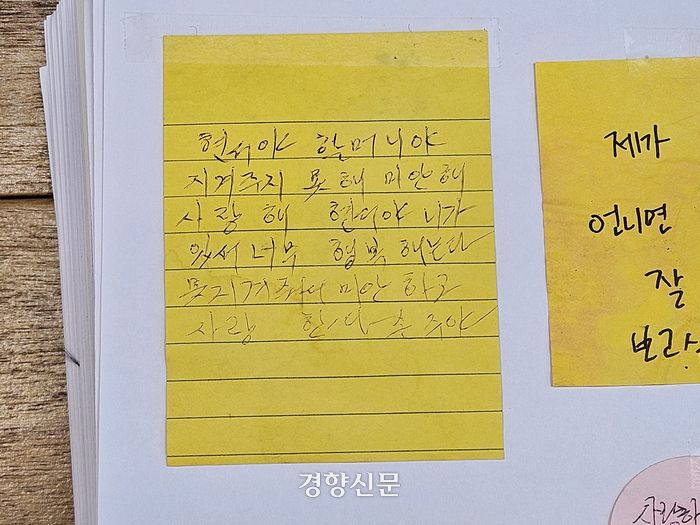 현서야 할머니야
지켜주지 못해 미안해
사랑해 현서야 니가
있서 너무 행복해는다
못지켜줘서 미안하고
사랑한다 손주야
제가
언니면
잘
보고
사랑하
경향신문